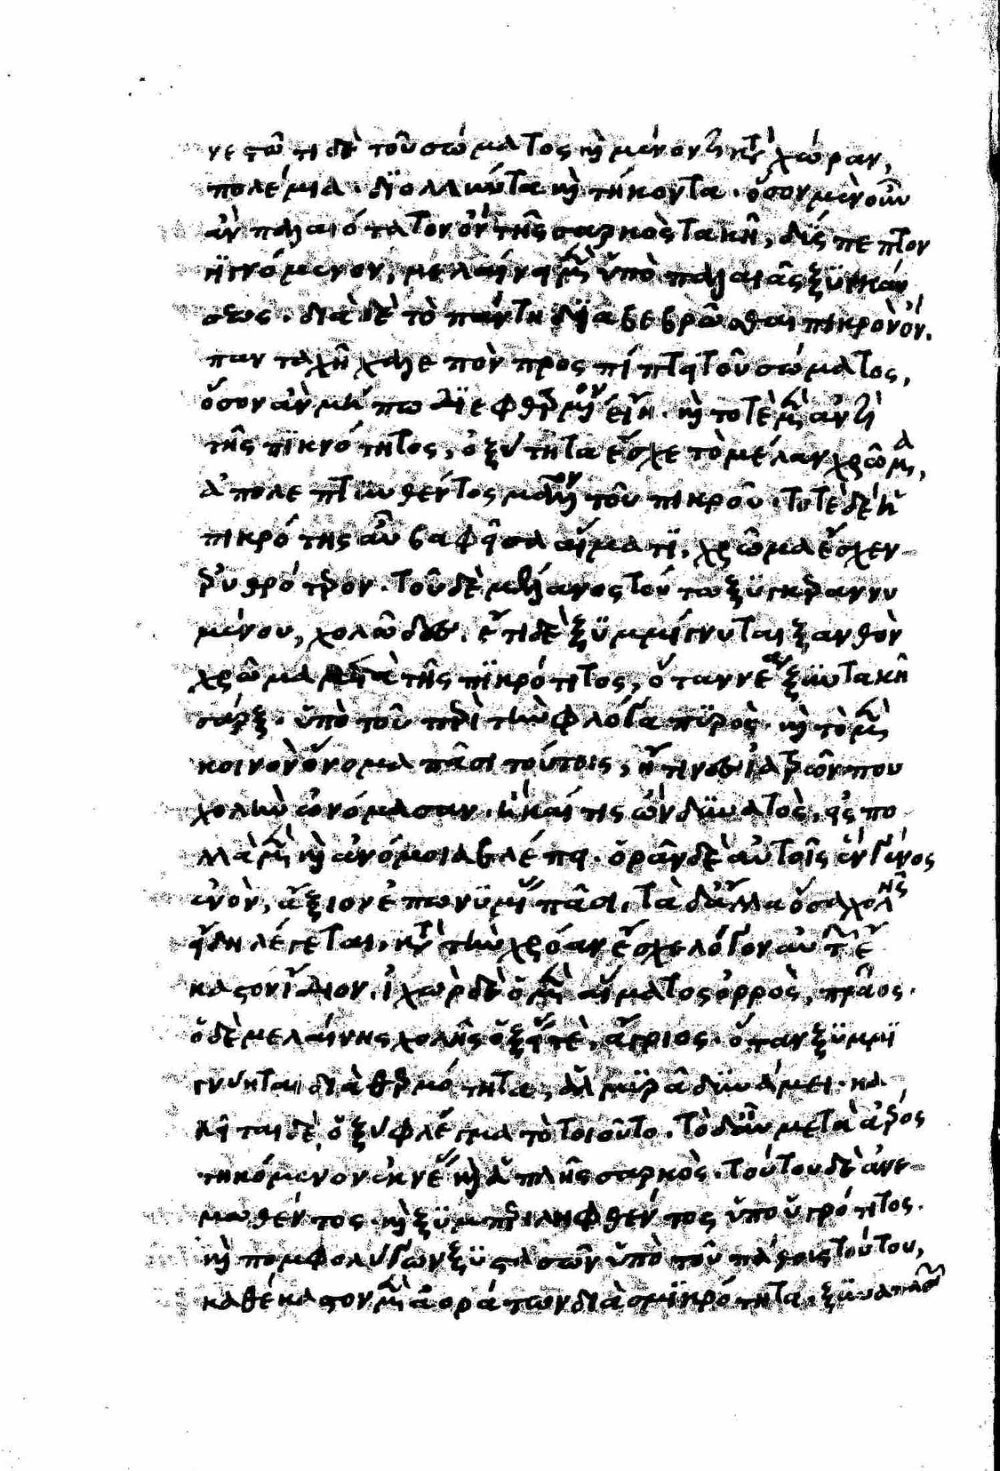 νεστῶτι δὲ τοῦ σώματος καὶ μένοντι κατὰ χώραν,
πολέμια. διολλύντα καὶ τήκοντα. ὅσον μὲν οὖν
ἂν παλαιότατον ὂν τῆς σαρκὸς τακῇ, δύσπεπτον
γινόμενον, μελαίνει μὲν ὑπὸ παλαιᾶς ξυγκαύ
σεως. διὰ δὲ τὸ πάντη διαβεβρῶσθαι πικρὸν ὄν.
παντὶ χαλεπὸν προσπίπτει τοῦ σώματος,
ὅσον ἂν μήπω διεφθαρμένον εἴη. καὶ τοτὲ μὲν ἀντὶ
τῆς πικρότητος, ὀξύτητα ἔσχε τὸ μέλαν χρῶμα,
ἀπολεπτυνθέντος μᾶλλον τοῦ πικροῦ. τοτὲ δὲ ἡ
πικρότης αὖ βαφεῖσα αἵματι, χρῶμα ἔσχεν
ἐρυθρότερον. τοῦ δὲ μέλανος τούτω ξυγκεραννυ
μένου, χολῶδες. ἔτι δὲ ξυμμίγνυται ξανθὸν
χρῶμα μετὰ τῆς πικρότητος, ὅταν νέα ξυντακῇ
σὰρξ. ὑπὸ τοῦ περὶ τὴν φλόγα πυρὸς. καὶ τὸ μὲν
κοινὸν ὄνομα πᾶσι τούτοις, ἤ τινες ἰατρῶν που
χολὴν ὠνόμασαν. ἢ καί τις ὢν δυνατὸς, εἰς πο
λλὰ μὲν καὶ ἀνόμοια βλέπειν. ὁρᾶν δὲ αὐτοῖς ἓν γένος
ἐνὸν, ἄξιον ἐπωνυμίας πᾶσι. τὰ δ' ἄλλα ὅσα χολῆς
εἴδη λέγεται, κατὰ τὴν χρόαν ἔσχε λόγον αὐτῶν ἕ
καστον ἴδιον. ἰχὼρ δὲ ὁ μὲν αἵματος ὀρρὸς, πρᾶος.
ὁ δὲ μελαίνης χολῆς ὀξείας τε, ἄγριος. ὅταν ξυμμι
γνύηται διὰ θερμότητα, ἁλμυρᾷ δυνάμει. κα
λεῖται δὲ, ὀξὺ φλέγμα τὸ τοιοῦτο. τὸ δ' αὖ μετὰ ἀέρος
τηκόμενον ἐκ νέας καὶ ἁπαλῆς σαρκὸς. τούτου δὲ ἀνε
μωθέντος. καὶ ξυμπεριληφθέντος ὑπὸ ὑγρότητος.
καὶ πομφολύγων ξυστασῶν ὑπὸ τοῦ πάθους τούτου,
καθ' ἕκαστον μὲν ἀοράτων διὰ σμικρότητα. ξυναπασῶν